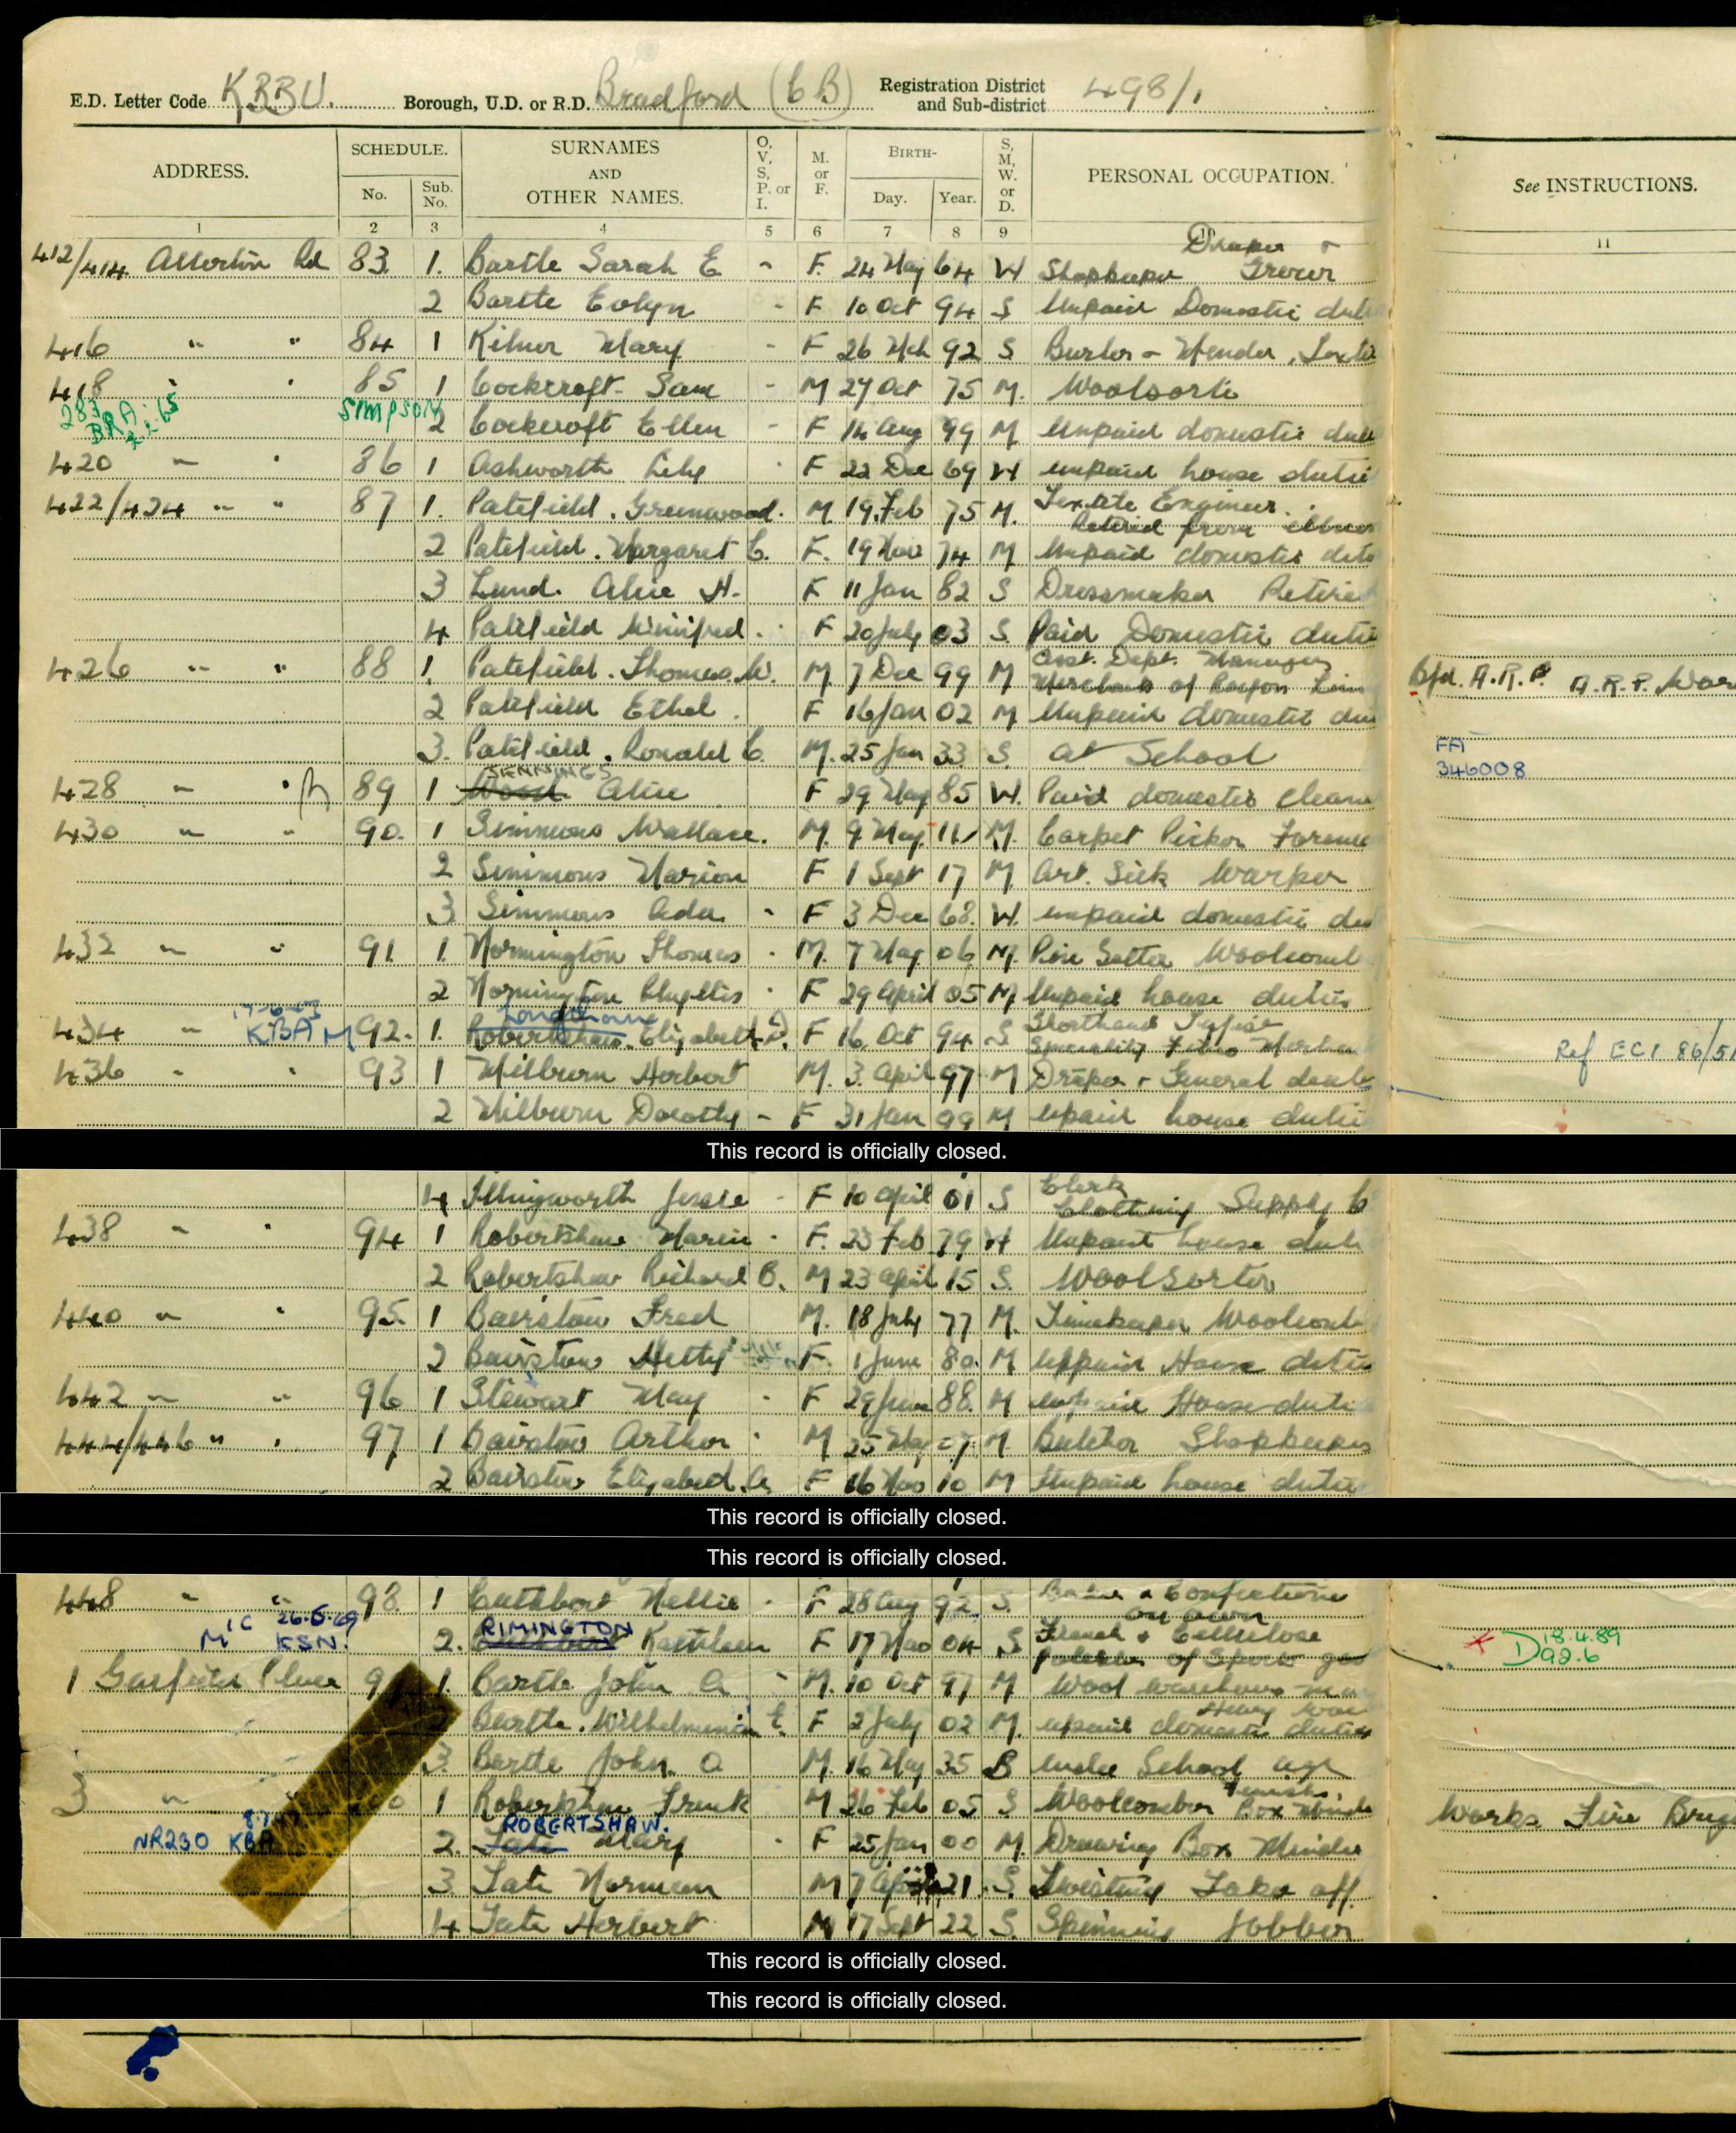 E.D. Letter Code KRBU. Borough, U.D. or R.D. Bradford (CB) Registration District and Sub-district 498/1
ADDRESS. SCHEDULE. No. Sub. No. SURNAMES AND OTHER NAMES. O, V, S, P. or I. M. or F. BIRTH- Day. Year. S, M, W. or D. PERSONAL OCCUPATION. See INSTRUCTIONS.
1 2 3 4 5 6 7 8 9 10 11
412/414 Allerton Rd 83. 1. Bartle Sarah E. - F. 24 May 64 W Shopkeeper Draper + Grocer
2 Bartle Evelyn - F 10 Oct 94 S Unpaid Domestic
416 " " 84 1 Kilner Mary - F 26 Mch 92 S Burler + Mender,
418 " " 85 1 Cockcroft Sam - M 27 Oct 75 M.
283 BRA SIMPSON
2 Cockcroft Ellen - F 14 Aug 99 M Unpaid domestic
420 " " 86 1 Ashworth Lily F 22 Dec 69 W unpaid house
422/424 " " 87 1. Patefield. Greenwood. M. 19 Feb 75 M. Textile Engineer. Retired from illness
2 Patefield. Margaret C. F. 19 Nov 74 M Unpaid domestic
3 Lund. Alice H. F 11 Jan 82 S Dressmaker Retired
4 Patefield Winifred. F 20 July 03 S. Paid Domestic
426 " " 88 1. Patefield. Thomas W. M. 7 Dec 99 M Asst. Dept. Manager Merchants of Rayon Bfd. A.R.P. A.R.P.
2 Patefield Ethel. F 16 Jan 02 M Unpaid domestic
3. Patefield. Ronald C. M. 25 Jan 33 S. at School
FA 346008
JENNINGS
428 " " 89 1 Wood Alice F 29 May 85 W. Paid domestic
430 " " 90. 1 Simmons Wallace. M. 9 May 11 M. Carpet
2 Simmons Marion F 1 Sept 17 M Art. Silk Warper
3. Simmons Ada - F 3 Dec 68. W. unpaid domestic
432 " " 91. 1 Normington Thomas M. 7 May 06 M. Woolcomb
2 Normington Phyllis F 29 April 05 M Unpaid house duties
KBA M
434 " 92. 1. Robertshaw. Elizabeth F 16 Oct 94 S Shorthand Typist Ref EC1 86/51
436 " " 93 1 Milburn Herbert M. 3. April 97 M Draper + General
2 Milburn Dorothy - F 31 Jan 99 M unpaid house
This record is officially closed.
4 Illingworth Jessie - F 10 April 01 S Clerk Clothing Supply
438 " " 94 1 Robertshaw F. 23 Feb 79 W Unpaid house
2 Robertshaw Richard B. M 23 April 15 S. Woolsorter
440 " " 95. 1 Bairstow Fred M. 18 July 77 M. Timekeeper
2 Bairstow Hetty F. 1 June 80. M Unpaid House
442 " " 96 1 Stewart May F 29 June 88. M unpaid House
444/446 " " 97 1 Bairstow Arthur M 25 May 07 M. Butcher Shopkeeper
2 Bairstow Elizabeth A. F 16 Nov 10 M Unpaid house
This record is officially closed.
This record is officially closed.
448 " " 98. 1 Cuthbert Nellie F 28 Aug 92. S.
M'C KSN. RIMINGTON
2. Kathleen F 17 Nov 04 S French + Cellulose D 18.4.89 92.6
1 Garfield Place 9 1. Bartle John A - M. 10 Oct 97 M Wool
Bartle. Wilhelmina E. F 2 July 02 M. unpaid domestic duties
3. Bartle John. A M. 16 May 35 under School age
3 " " 1 Robertshaw Frank M 26 Feb 05 S Woolcomber Works Fire
ROBERTSHAW.
NR230 KBA 2. Tate Mary F 25 Jan 00 M. Drawing Box Minder
3. Tate Norman M 7 April 21. S. Twisting Take off.
4 Tate Herbert M 17 Sept 22 S. Spinning Jobber
This record is officially closed.
This record is officially closed.